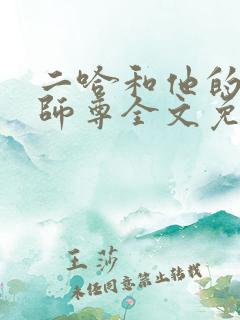 二哈和他的
师尊全文免
王莎
未经同意禁止转载